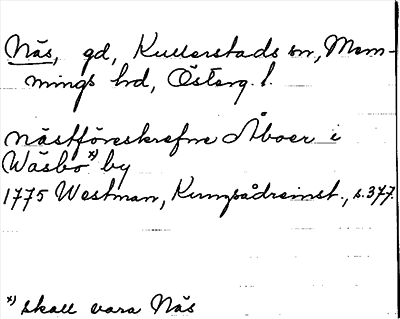 Näs, gd, Kullerstads sn, Mem-
mings hd, Österg. l.
nästföreskrefne Åboer i
Wäsbo *) by
1775 Westman, Kungsådreinst., s. 377.
*) skall vara Näs